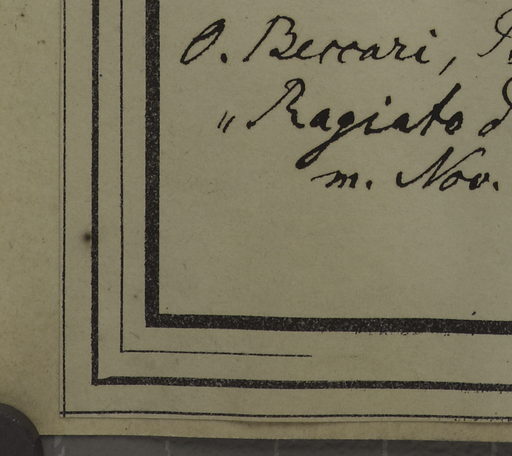 O. Beccari, P
„ Ragiato d
m. Nov.